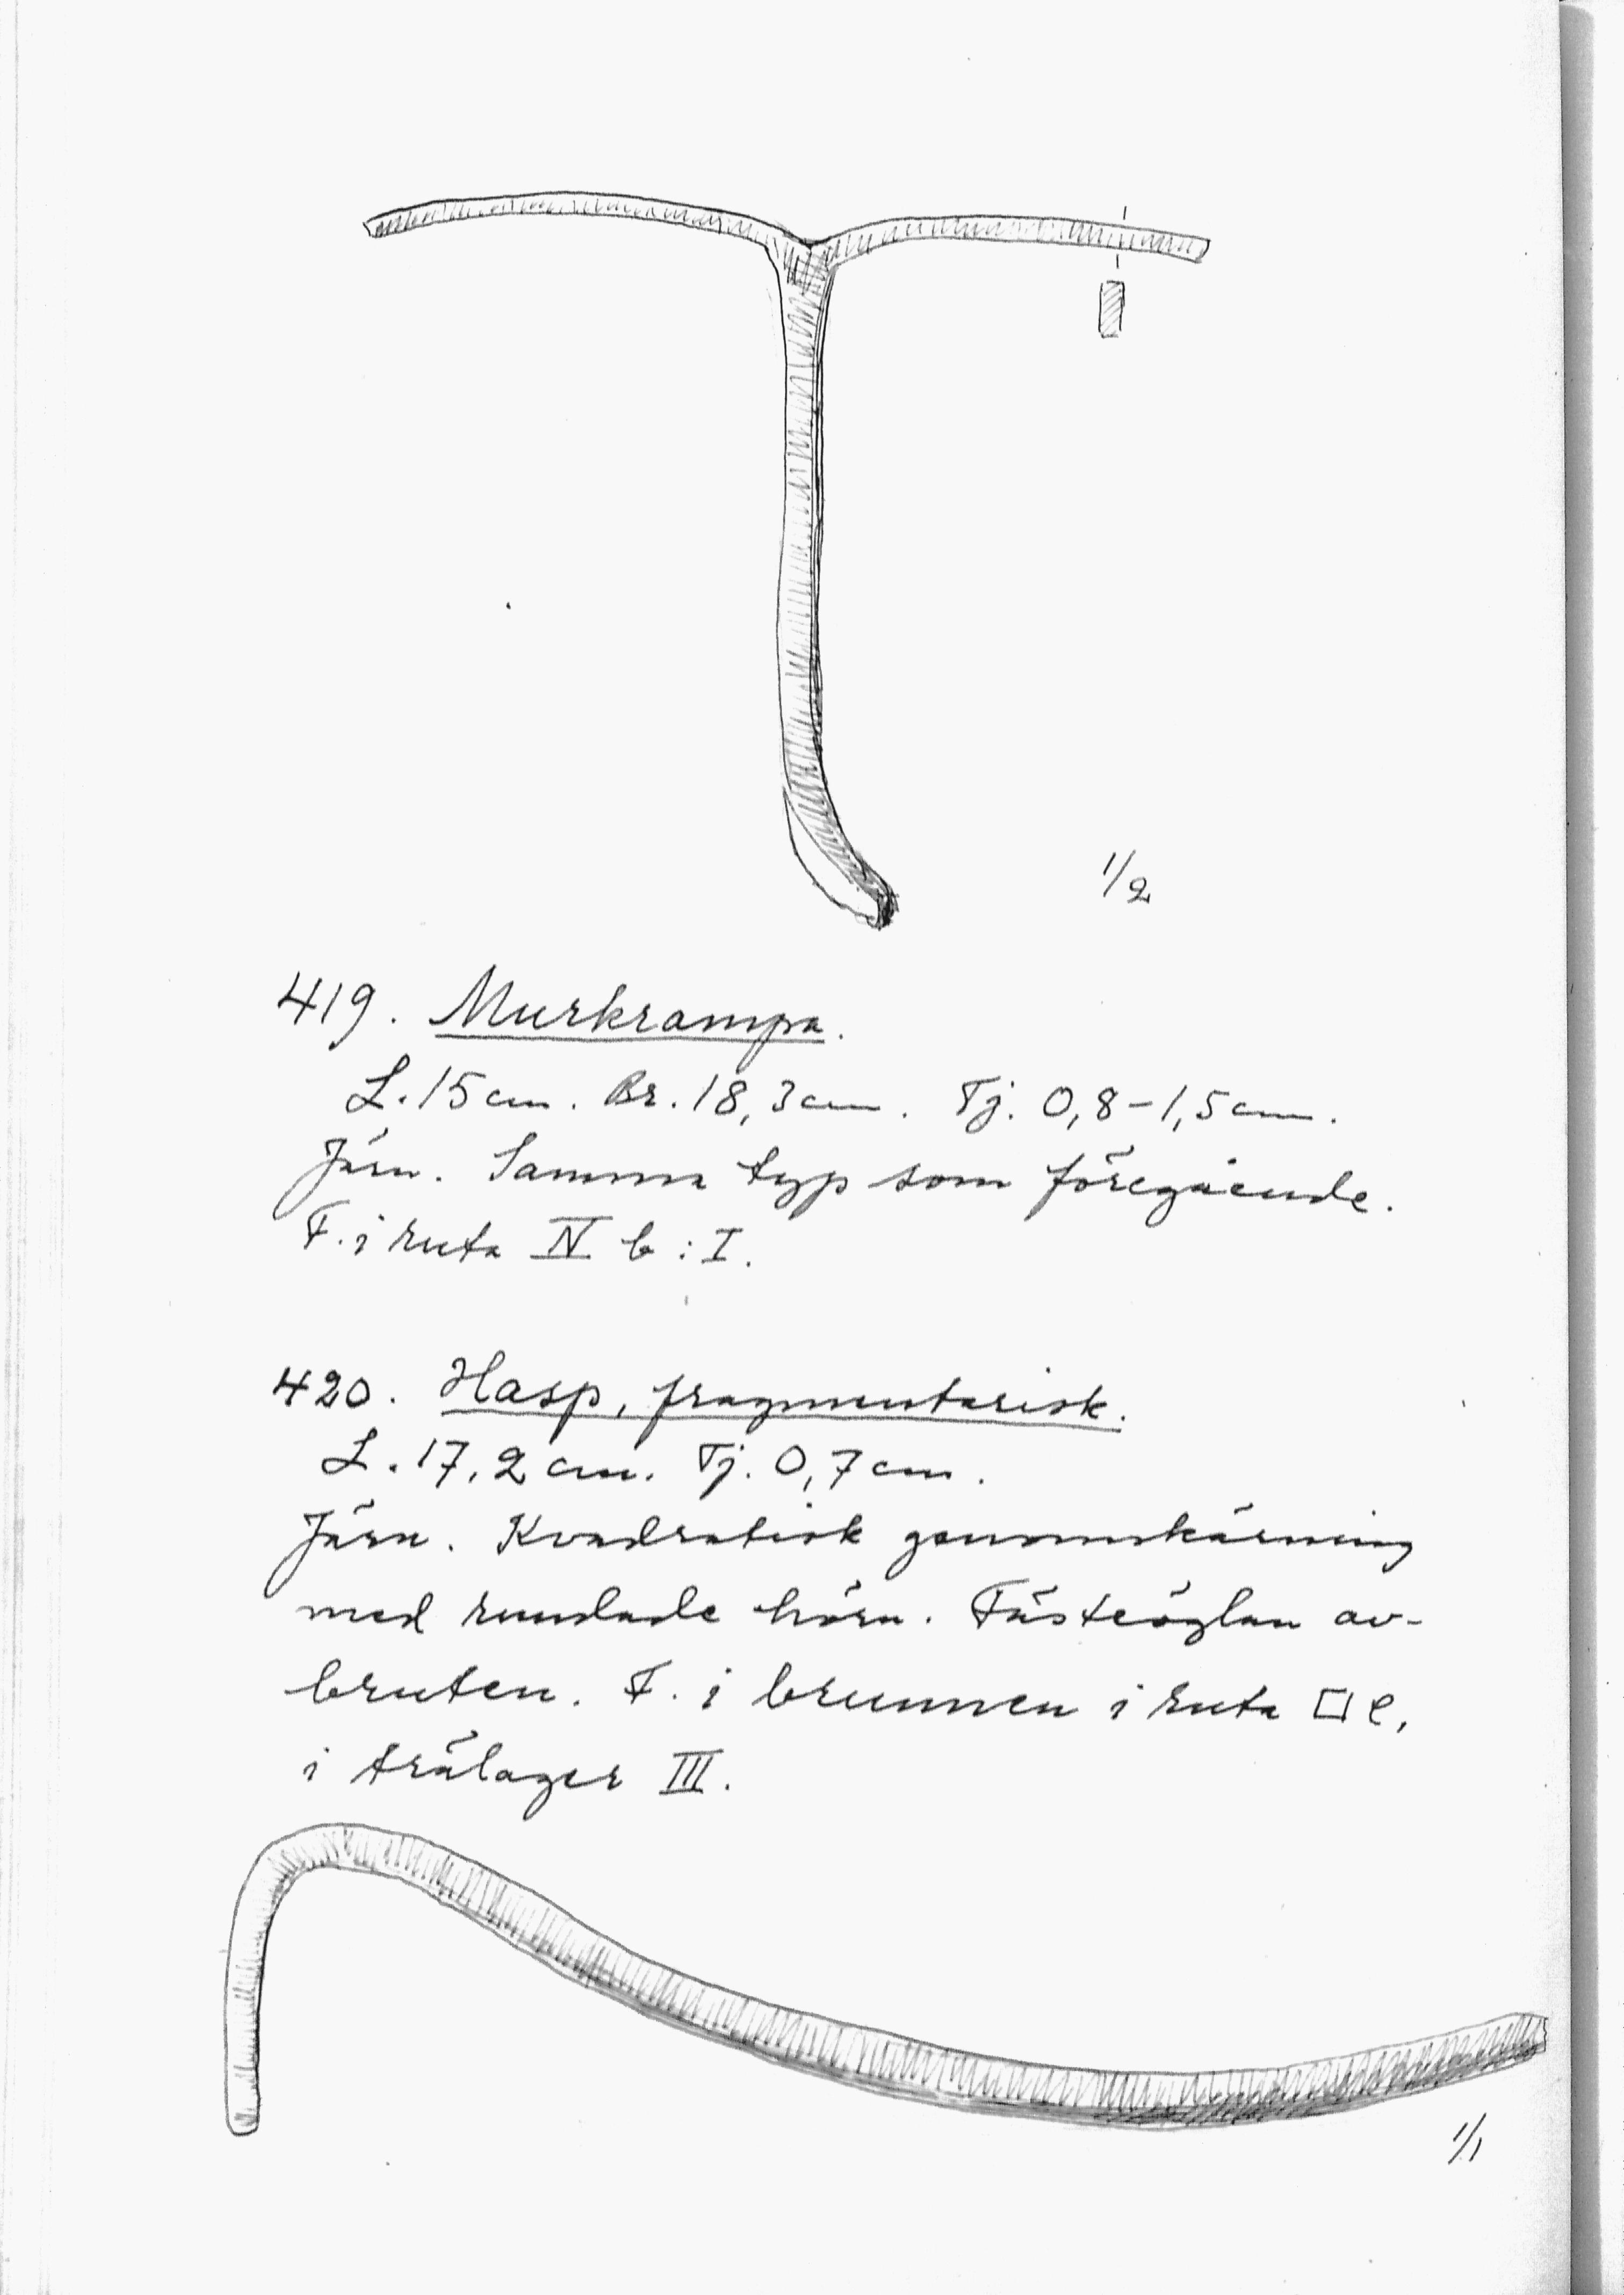 1/2
419. Murkrampa.
L. 15 cm. Br. 18,3 cm. Tj. 0,8-1,5 cm.
Järn. Samma typ som föregående.
F. i ruta IV b : I.
420. Hasp, fragmentarisk.
L. 17,2 cm. Tj. 0,7 cm.
Järn. Kvadratisk genomskärning
med rundade hörn. Fästeöglan av-
bruten. F. i brunnen i ruta □ e,
i trälager III.
1/1